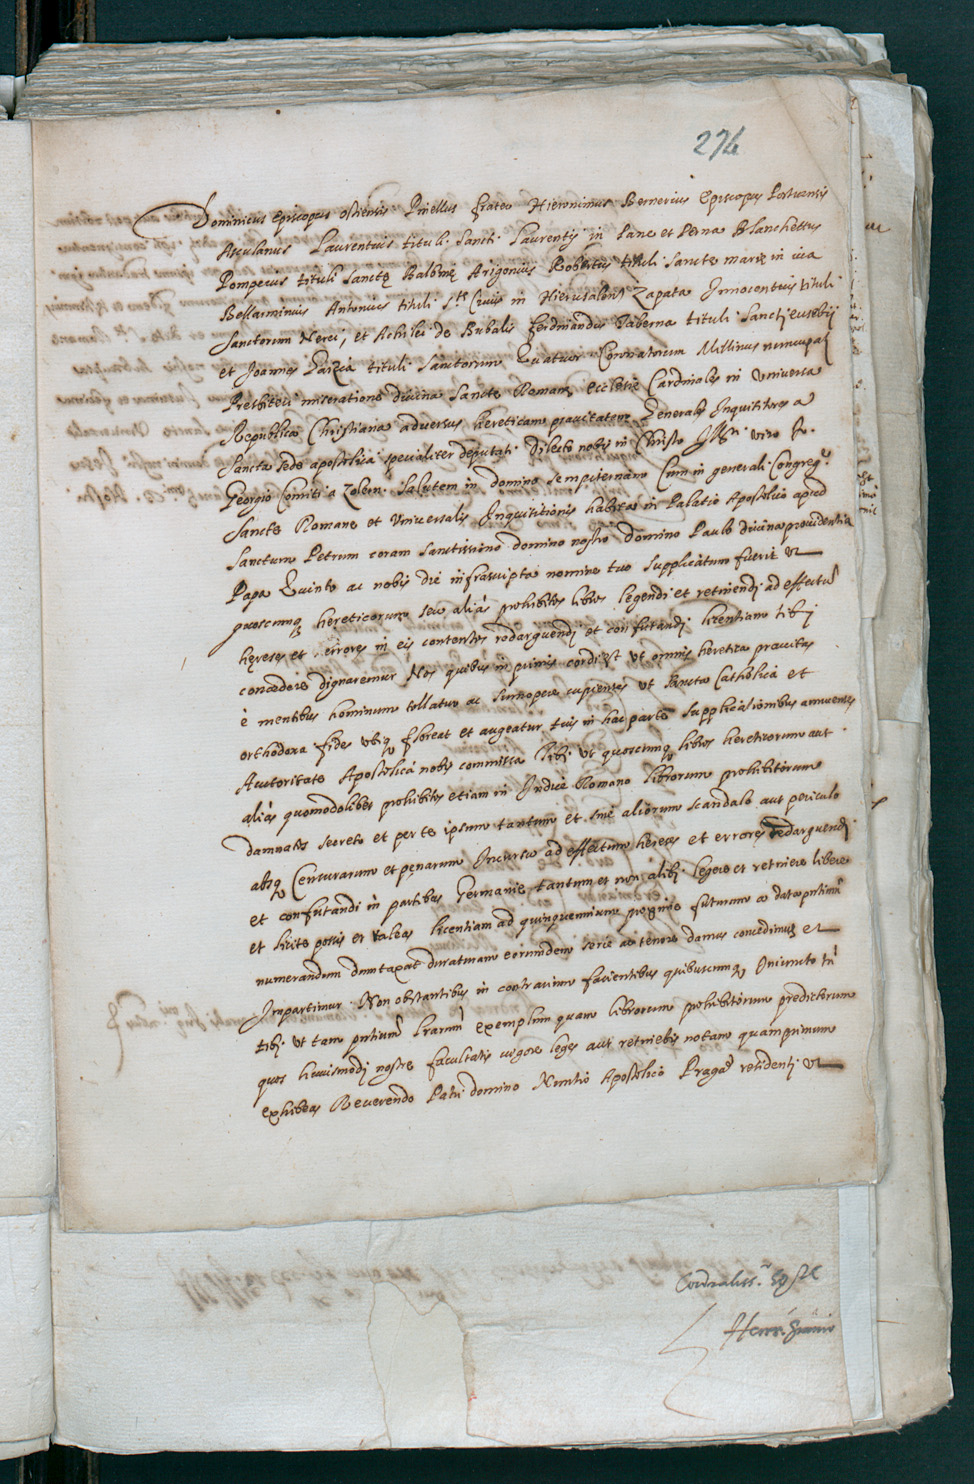 274
Dominicus Episcopus Ostiensis Pinellus frater Hieronimus Bernerius Episcopus Portuensis
Asculanus Laurentius tituli Sancti Laurentij in Pane et Perna Blanchettus
Pompeius tituli Sanctę Balbinę Arigonius Robertus tituli Sanctę marię in via
Bellarminius Antonius tituli Stę Crucis in Hierusalem Zapata Innocentius tituli
Sanctorum Nerei, et Achilei de Bubalis ferdinandus Taberna tituli Sancti eusebij
et Joannes Garzia tituli Sanctorum Quatuor Coronatorum Millinus nuncupati
Presbiteri miseratione divina Sanctę Romanę Ecclesię Cardinales in Universa
Republica Christiana adversus hereticam pravitatem Generales Inquisitores a
Sancta sede apostolica specialiter deputati. Dilecto nobis in Christo Ill.ri viro D.
Georgio Comiti a Zolern. Salutem in domino sempiternam Cum in generali Congreg.e
Sanctę Romanę et Universalis Inquisitionis habita in Palatio Apostolico apud
Sanctum Petrum coram Sanctissimo domino nostro domino Paulo divina providentia
Papa Quinto ac nobis die infrascripta nomine tuo supplicatum fuerit ut
quoscunq hereticorum seu aliàs prohibitos libros legendi et retinendi ad effectū
hęreses et errores in eis contentos redarguendi et confutandi licentiam tibi
concedere dignaremur Nos quibus in primis cordi est ut omnis heretica pravitas
è mentibus hominum tollatur ac summopere cupientes ut Sancta Catholica et
orthodoxa fides ubiq floreat et augeatur tuis in hac parte supplicationibus annuentes
Auctoritate Apostolica nobis commissa tibi ut quoscunq libros hereticorum aut
aliàs quomodolibet prohibitos etiam in Indice Romano librorum prohibitorum
damnatos secreto et per te ipsum tantum et sine aliorum scandalo aut periculo
absq Censurarum et pęnarum Incursu ad effectum hereses et errores redarguendi
et confutandi in partibus Germanię tantum et non alibi legere et retinere libere
et licite possis et valeas licentiam ad quinquennium proxime futurum a data pntium
numerandum dumtaxat duraturam eorumdem serie ac tenore damus concedimus et
Impartimur. Non obstantibus in contrarium facientibus quibuscunq Iniuncto tn
tibi ut tam pntium lrarum exemplum quam librorum prohibitorum predictorum
quos huiusmodi nostrę facultatis vigore leges aut retinebis notam quamprimum
exhibeas Reverendo Patri domino Nuntio Apostolico Pragę residenti ut